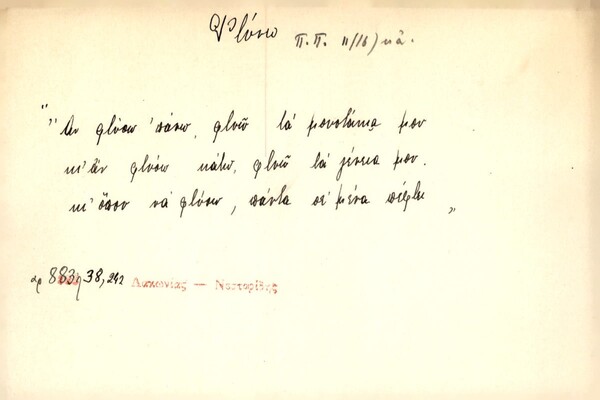 Φτύνω Π.Π. 11/16) κἄ.
"Ἂν φτύσω 'πάνω, φτυῶ τὰ μουστάκια μου
κι' ἂν φτύσω κάτω, φτυῶ τὰ γένεια μου.
κι' ὅπου νὰ φτύσω, πάντα σὲ μένα πέφτει"
αρ 883η 38, 242 Λακωνίας — Νεστορίδης